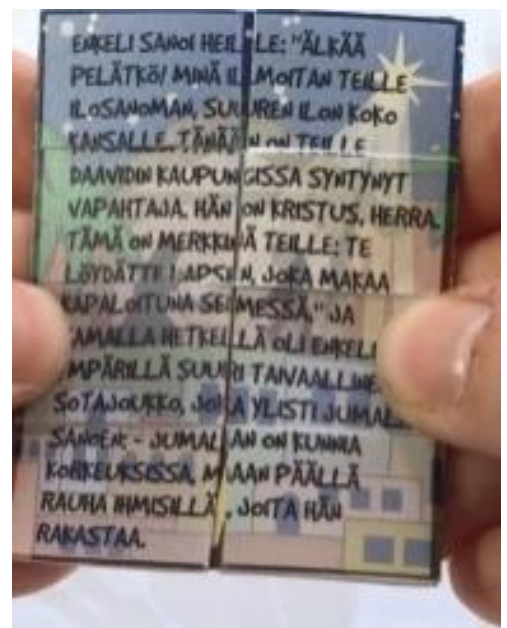 ENKELI SANOI HEILLE: "ÄLKÄÄ
PELÄTKÖ! MINÄ ILMOITAN TEILLE
ILOSANOMAN, SUUREN ILON KOKO
KANSALLE. TÄNÄÄN ON TEILLE
DAAVIDIN KAUPUNGISSA SYNTYNYT
VAPAHTAJA. HÄN ON KRISTUS, HERRA.
TÄMÄ ON MERKKINÄ TEILLE: TE
LÖYDÄTTE LAPSEN, JOKA MAKAA
KAPALOITUNA SEIMESSÄ." JA
SAMALLA HETKELLÄ OLI ENKELI
YMPÄRILLÄ SUURI TAIVAALLINE
SOTAJOUKKO, JOKA YLISTI JUMAL
SANOEN: - JUMALAN ON KUNNIA
KORKEUKSISSA, MAAN PÄÄLLÄ
RAUHA IHMISILLÄ, JOITA HÄN
RAKASTAA.